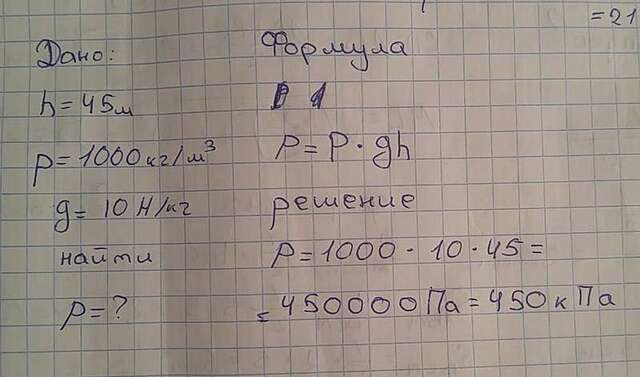 =21
Дано:
h=45м
p=1000кг/м³
g=10Н/кг
найти
p=?
Формула
P=P·gh
решение
P=1000·10·45=
=450000Па=450кПа